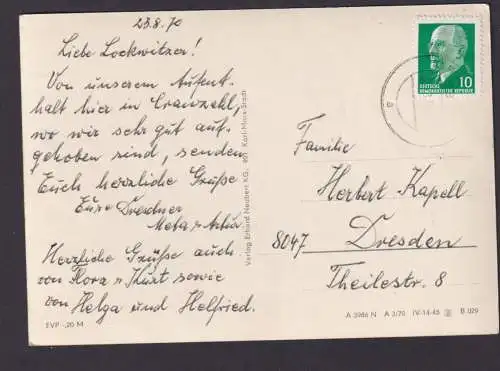 23.8.70
Liebe Lockwitzer!
Von unserem Aufent-
halt hier in Cranzahl,
wo wir sehr gut auf-
gehoben sind, senden
Euch herzliche Grüße
Eure Dresdner
Meta u. Artur
Herzliche Grüße auch
von Flora u. Kurt sowie
von Helga und Helfried.
EVP -,20 M
Verlag Erhard Neubert KG, 901 Karl-Marx-Stadt
10
DEUTSCHE
DEMOKRATISCHE REPUBLIK
Familie
Herbert Kapell
8047 Dresden
Theilestr. 8
A 3986 N A 3/70 IV-14-45 B 029